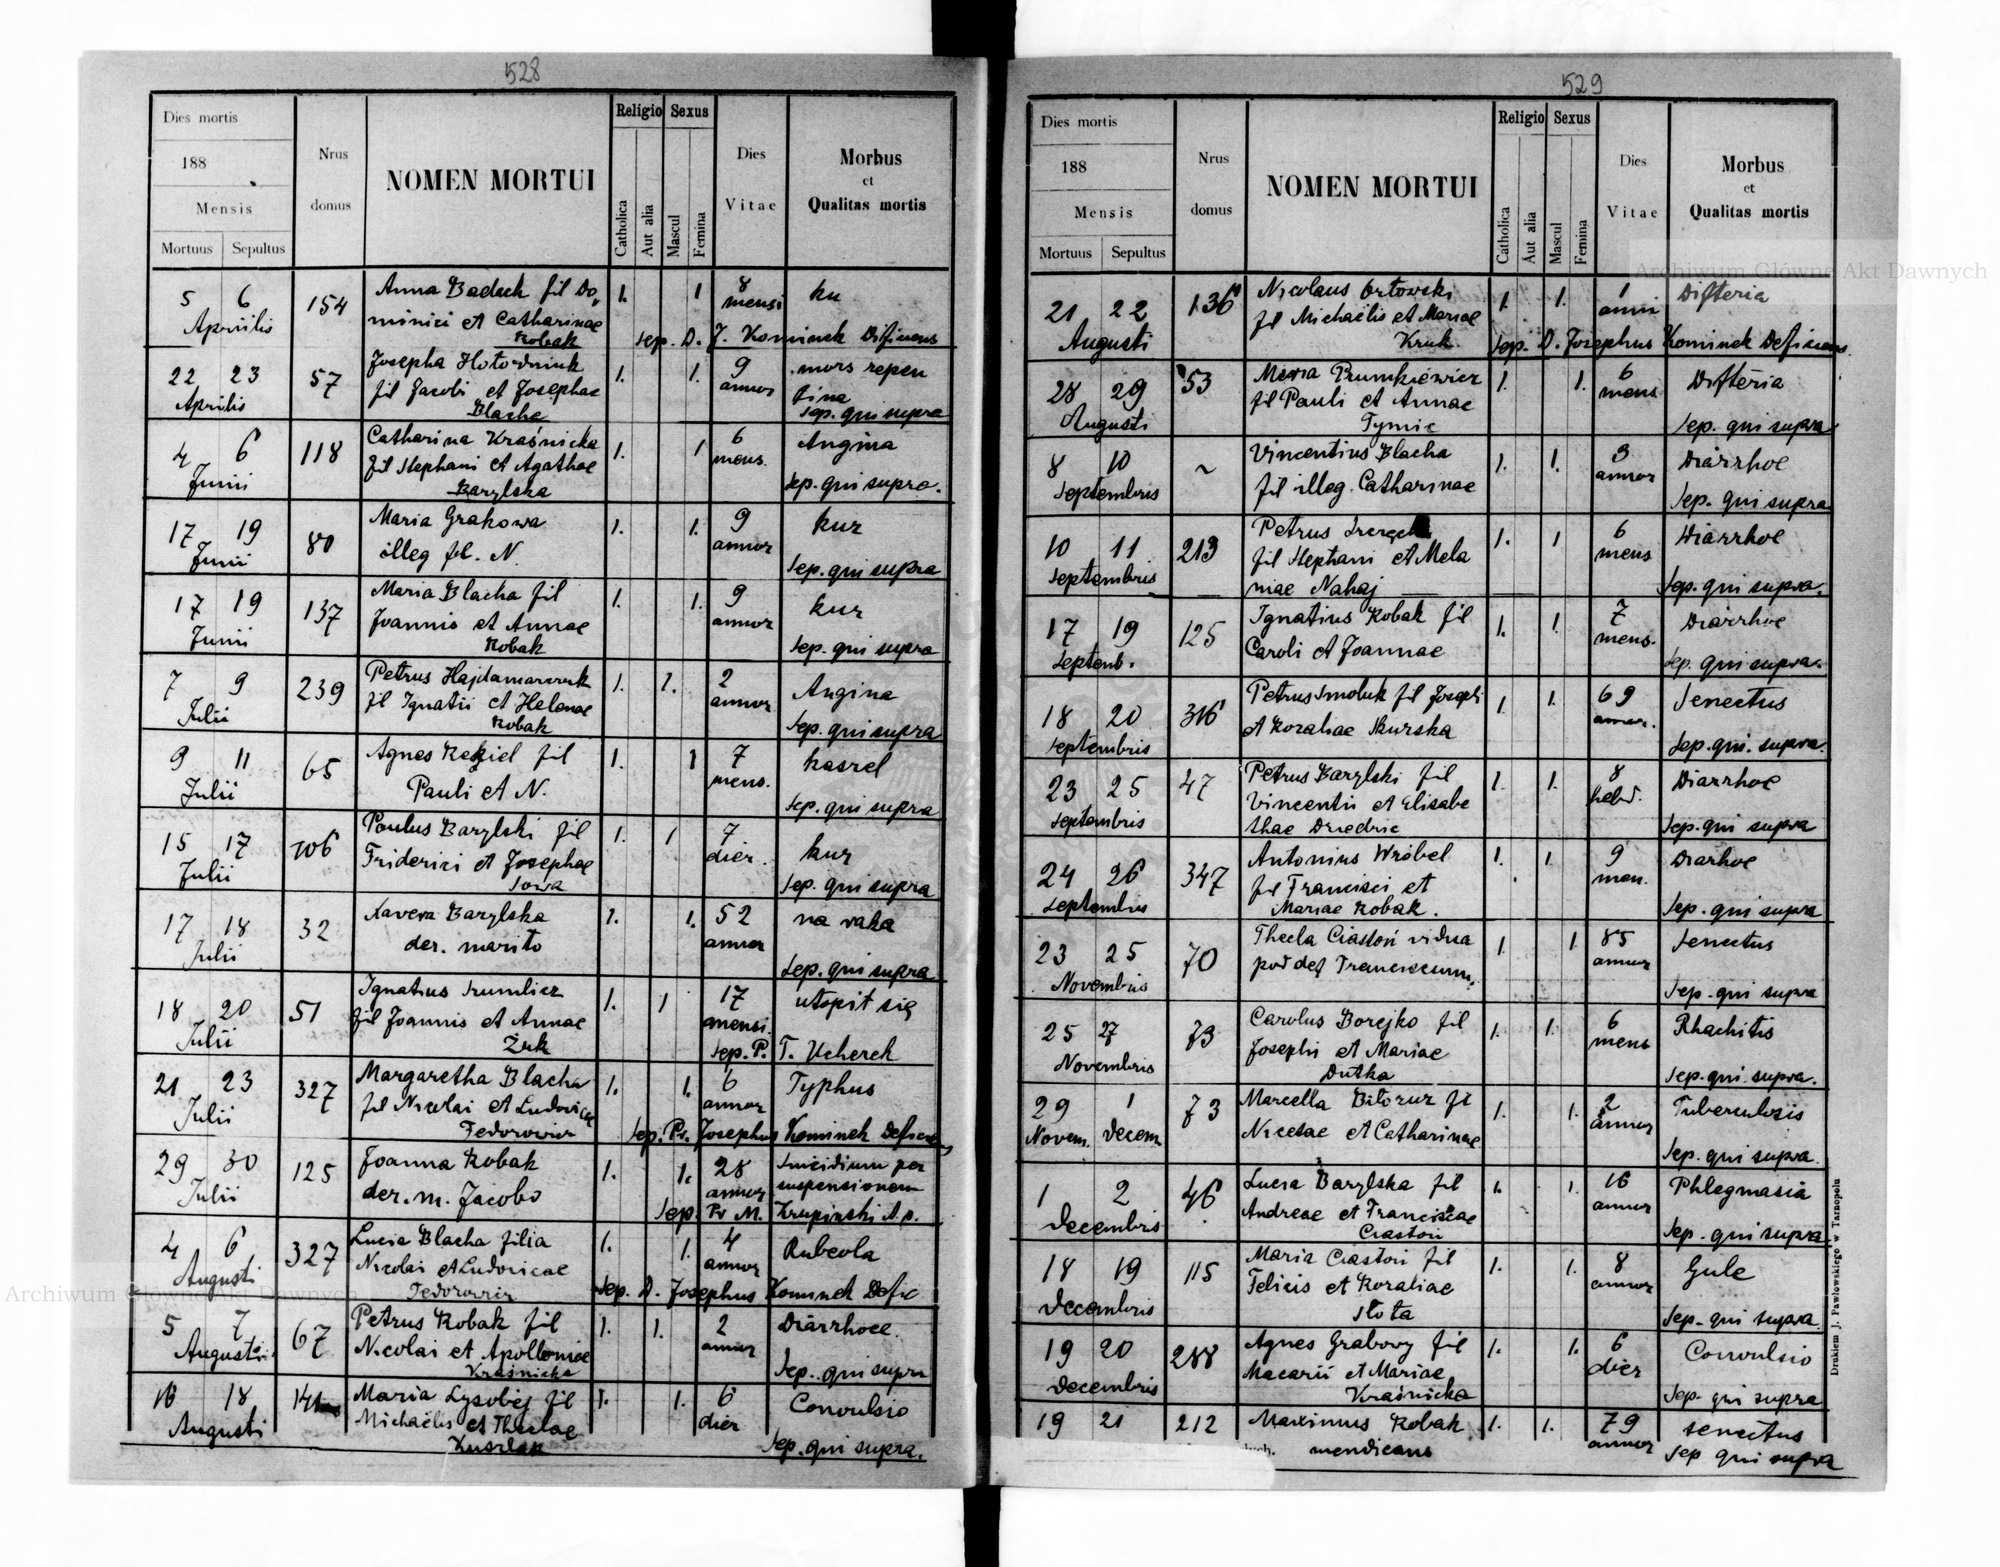 528
Dies mortis
188
Mensis
Mortuus Sepultus
Nrus domus
NOMEN MORTUI
Religio
Catholica
Aut alia
Sexus
Mascul
Femina
Dies Vitae
Morbus et Qualitas mortis
5 6 154 Anna Baduch fil Do, 1. 1 8 ku
Aprilis minici et Catharinae mensi
Robak Sep. D. J. Kominek Deficiens
22 23 57 Josepha 1. 1. 9 mors repen
Aprilis fil Jacobi et Josephae annor tina
Blacha Sep. qui supra
4 6 118 Catharina Kraśnicka 1. 1 6 Angina
Junii fil Stephani et Agathae mens.
Barylska Sep. qui supra.
17 19 80 Maria Grakowa 1. 1. 9 kur
Junii illeg fil. N. annor
Sep. qui supra
17 19 137 Maria Blacha fil 1. 1. 9 kur
Junii Joannis et Annae annor
Robak Sep. qui supra
7 9 239 Petrus Hajdamarczuk 1. 1. 2 Angina
Julii fil Ignatii et Helenae annor
Robak Sep. qui supra
9 11 65 Agnes fil 1. 1 7 kaszel
Julii Pauli et N. mens.
Sep. qui supra
15 17 106 Paulus Barylski fil 1. 1 7 kur
Julii Friderici et Josephae dier.
Sowa Sep. qui supra
17 18 32 Xavera Barylska 1. 1. 52 na raka
Julii der. marito annor
Sep. qui supra
18 20 51 Ignatius 1. 1 17 utopit się
Julii fil Joannis et Annae mensi.
Żuk Sep. P. T. Ucherek
21 23 327 Margaretha Blacha 1. 1. 6 Typhus
Julii fil Nicolai et Ludovicae annor
Fedorowicz Sep. Pr. Josephus Kominek Deficiens
29 30 125 Joanna Robak 1. 1. 28 Suicidium per
Julii der. m. Jacobo annor suspensionem
Sep. Pr M. Krupinski A.p.
4 6 327 Lucia Blacha filia 1. 1. 4 Rubeola
Augusti Nicolai et Ludovicae annor
Fedorowicz Sep. D. Josephus Kominek Defic
5 7 67 Petrus Robak fil 1. 1. 2 Diarrhoee.
Augusti Nicolai et Apolloniae annor
Kraśnicka Sep. qui supra
16 18 141 Maria Lysobej fil 1. 1. 6 Convulsio
Augusti Michaëlis et Theclae dier
Sep. qui supra.
529
Dies mortis
188
Mensis
Mortuus Sepultus
Nrus domus
NOMEN MORTUI
Religio
Catholica
Aut alia
Sexus
Mascul
Femina
Dies Vitae
Morbus et Qualitas mortis
21 22 136 Nicolaus Orłowski 1. 1. 1 Difteria
Augusti fil Michaëlis et Mariae anni
Kruk Sep. D. Josephus Kominek Deficiens
28 29 53 Maria Prumkiewicz 1. 1. 6 Difteria
Augusti fil Pauli et Annae mens
Tymic Sep. qui supra
8 10 ~ Vincentius Blacha 1. 1. 3 Diarrhoe
Septembris fil illeg. Catharinae annor
Sep. qui supra
10 11 213 Petrus 1. 1 6 Diarrhoe
Septembris fil Stephani et Mela mens
niae Nahaj Sep. qui supra.
17 19 125 Ignatius Robak fil 1. 1 7 Diarrhoe
Septemb. Caroli et Joannae mens.
Sep. qui supra.
18 20 316 Petrus Smoluk fil Josephi 1. 1. 69 Senectus
Septembris et Rozaliae Skurska annor.
Sep. qui. supra.
23 25 47 Petrus Barylski fil 1. 1. 8 Diarrhoe
Septembris Vincentii et Elisabe hebd.
thae Driedric Sep. qui supra
24 26 347 Antonius Wróbel 1. 1. 9 Diarhoe
Septembris fil Francisci et men.
Mariae Robak. Sep. qui supra
23 25 70 Thecla Ciastoń vidua 1. 1 85 Senectus
Novembris post def Franciscum. annor
Sep. qui supra
25 27 73 Carolus Borejko fil 1. 1. 6 Rhachitis
Novembris Josephi et Mariae mens
Dutka Sep. qui supra.
29 1 73 Marcella Bitoruz fil 1. 1. 2 Tuberculosis
Novem. Decem Nicetae et Catharinae annor
Sep. qui supra.
1 2 46 Lucia Barylska fil 1. 1. 16 Phlegmasia
Decembris Andreae et Franciscae annor
Ciastoń Sep. qui supra
18 19 115 Maria Ciastoń fil 1. 1. 8 Gule
Decembris Felicis et Rozaliae annor
Słota Sep. qui supra.
19 20 288 Agnes Grabowy fil 1. 1. 6 Convulsio
Decembris Macarii et Mariae dier
Kraśnicka Sep. qui supra
19 21 212 Maximus Robak 1. 1. 79 senectus
mendicans annor Sep qui supra
Drukiem J. Pawłowskiego w Tarnopolu
Archiwum Główne Akt Dawnych
Archiwum Główne Akt Dawnych